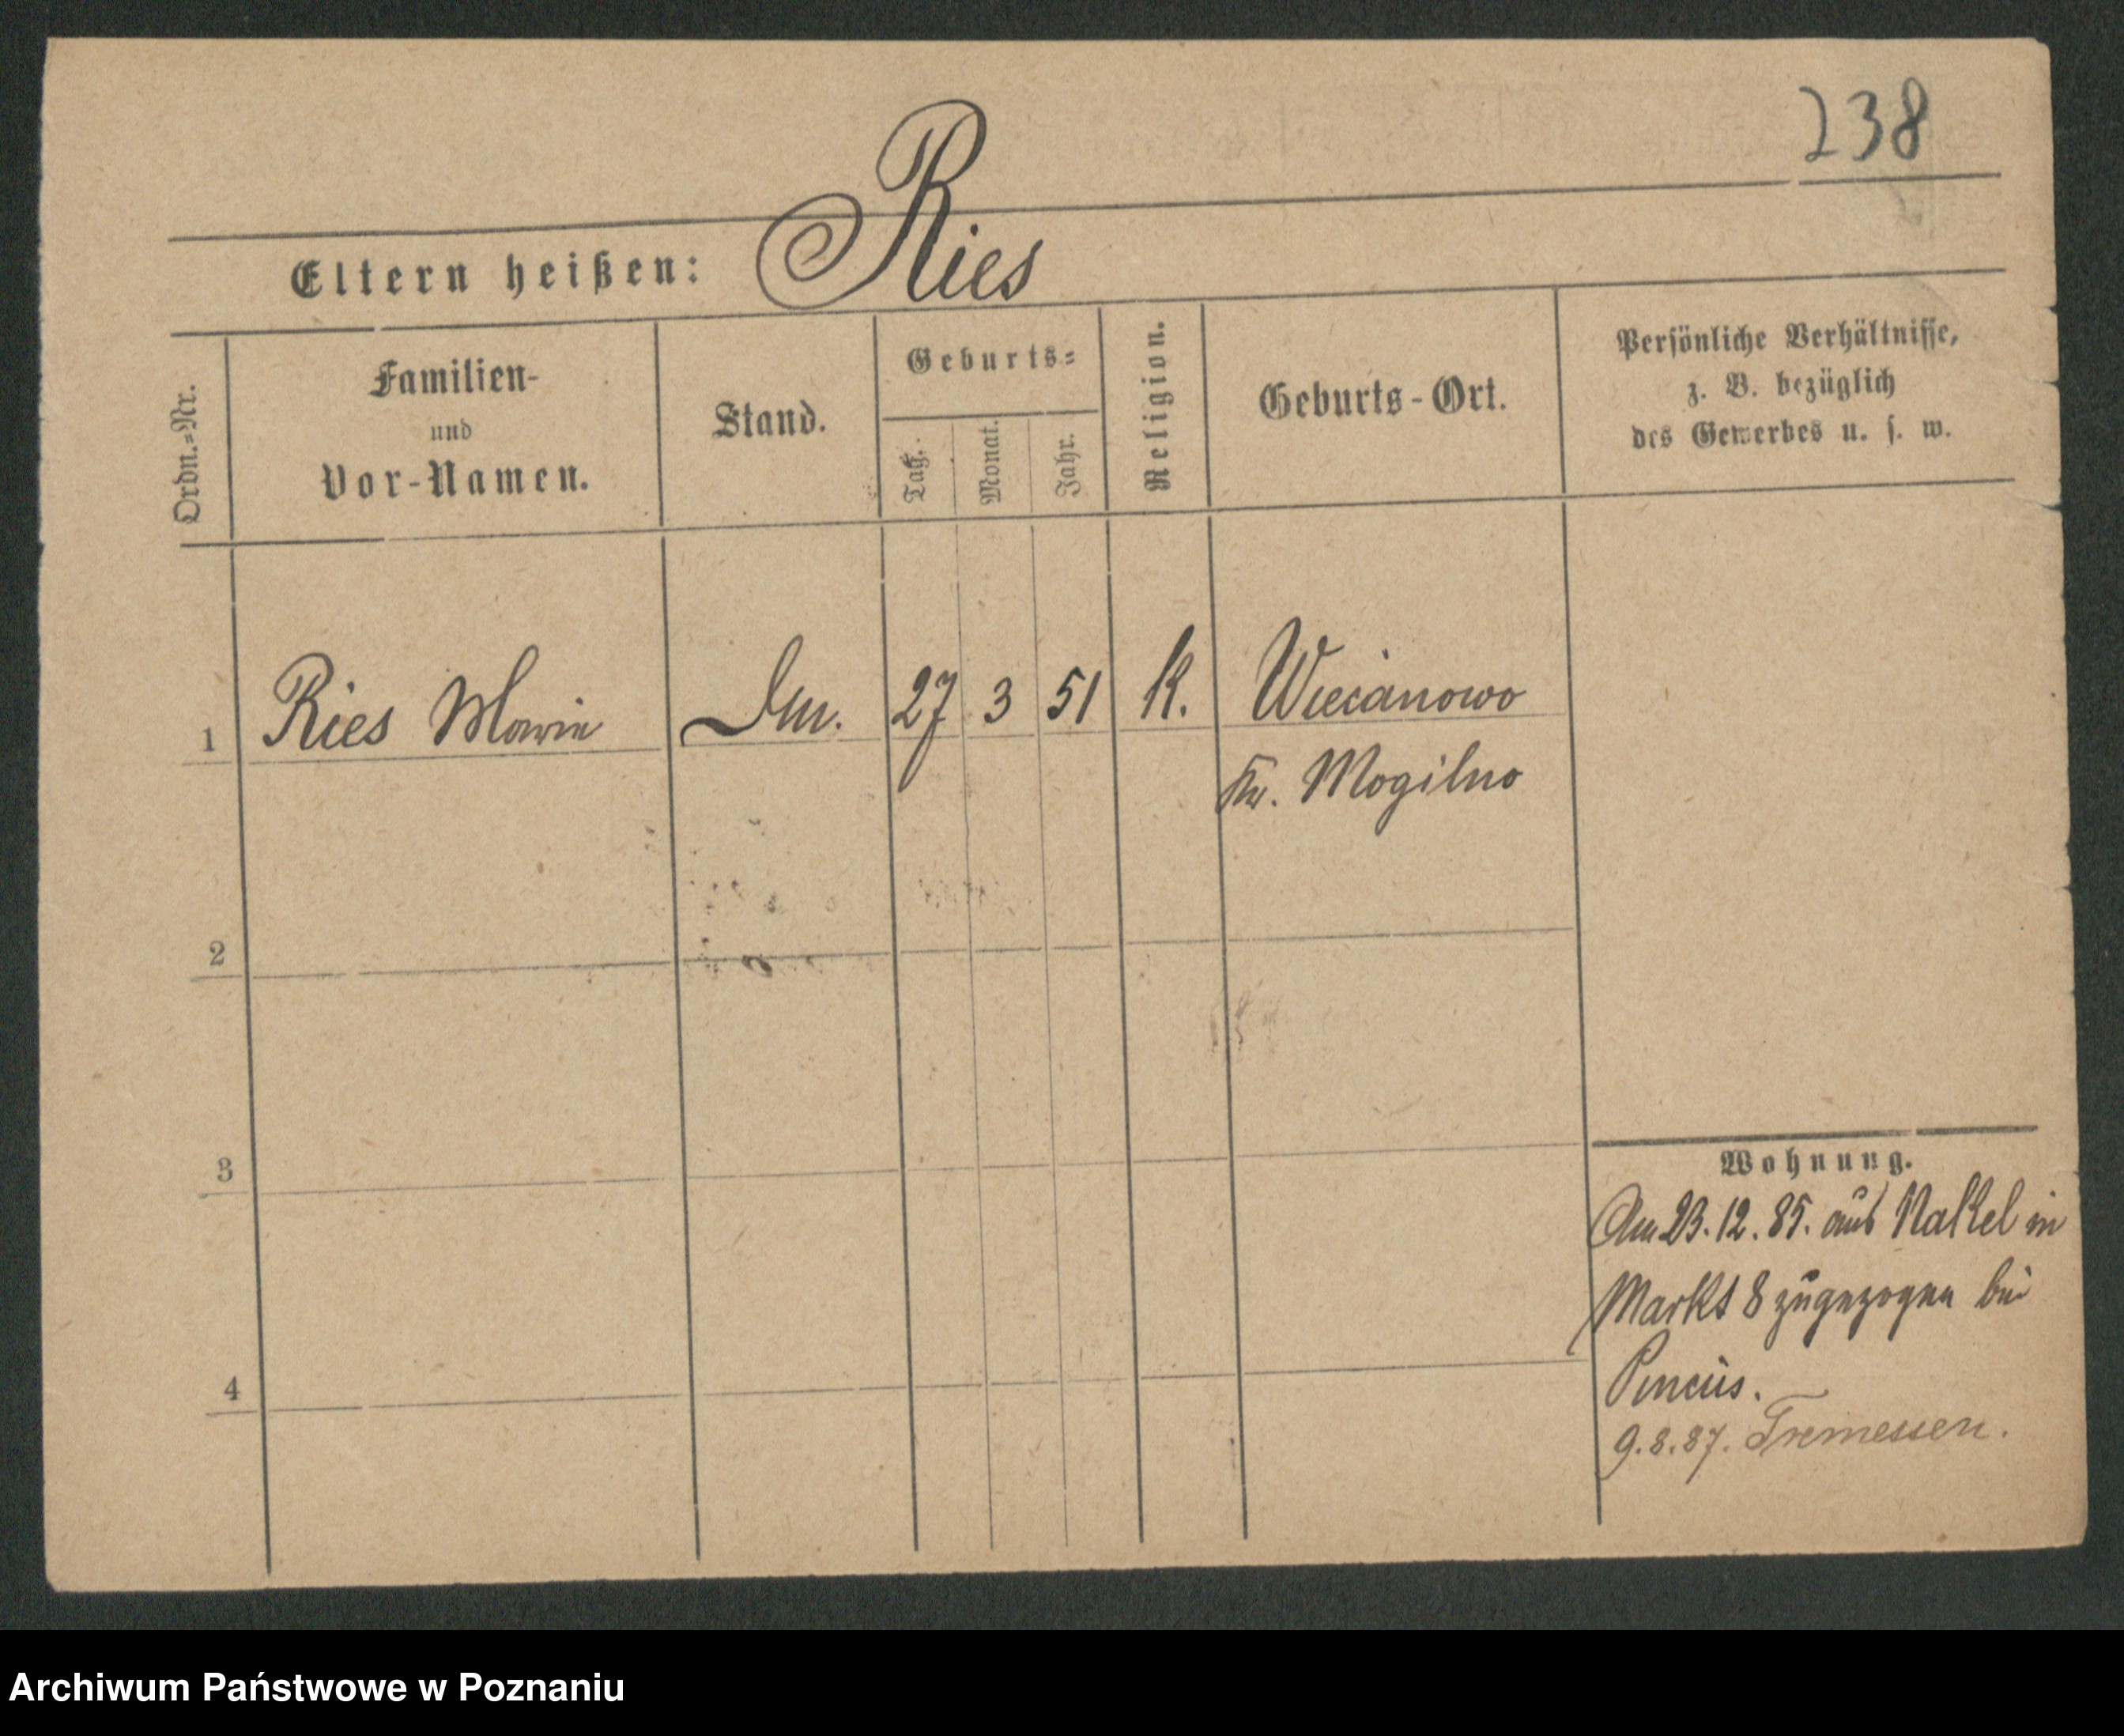 238
Eltern heißen: Ries
Ordn.=Nr.
Familien-
und
Vor-Namen.
Stand.
Geburts=
Tag.
Monat.
Jahr.
Religion.
Geburts-Ort.
Persönliche Verhältnisse,
z. B. bezüglich
des Gewerbes u. s. w.
1 Ries Marie 27 3 51 K. Wiecanowo
Kr. Mogilno
2
3
4
Wohnung.
Am 23.12.85. aus Nakel in
Markt 8 zugezogen bei
Pincus.
9.8.87. Tremessen.
Archiwum Państwowe w Poznaniu